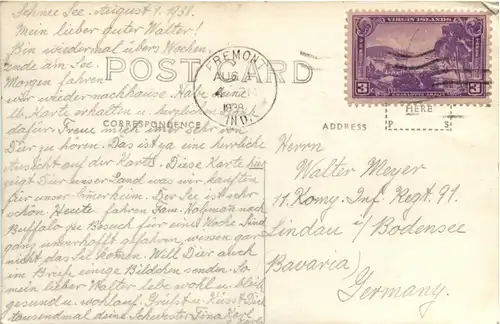 Schnee See. August 1. 1938.
Mein lieber guter Walter!
Bin wiedermal übers Wochen-
ende am See.
Morgen fahren
wir wieder nachhause. Habe Deine
lb. Karte erhalten u. herzlichen Dank
dafür. Freue mich immer sehr von
Dir zu hören. Das ist ja eine herrliche
Aussicht auf der Karte. Diese Karte hier
zeigt Dir unser Land was wir kauften
für unser Sommerheim. Der See ist sehr
schön. Heute fahren Fam. nach
Buffalo zu Besuch für eine Woche. Sind
ganz unverhofft gefahren, wissen gar
nicht das Sie kommen. Will Dir auch
im Briefe einige Bildchen senden. So
mein lieber Walter lebe wohl u. bleib
gesund u. wohlauf. Grüßt u. Küsst Dich
tausendmal deine Schwester Tina Karl
POST CARD
CORRESPONDENCE
ADDRESS
FREMONT
AUG 1
1938
IND.
VIRGIN ISLANDS
3 3
HERE
P S
Herrn
Walter Meyer
11. Komp. Inf. Regt. 91.
Lindau i/Bodensee
Bavaria
Germany.